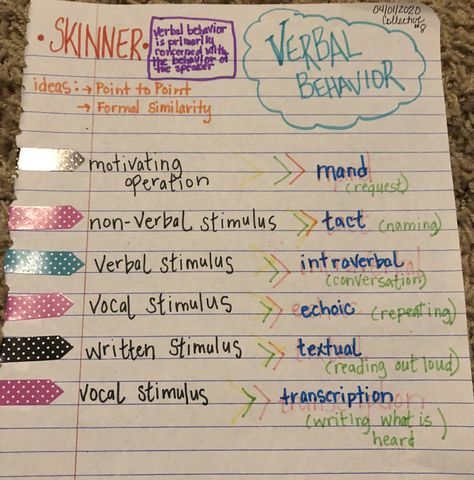 04/01/2020
Collective
#8
• SKINNER •
Verbal behavior
is primarily
concerned with
the behavior of
the speaker
VERBAL
BEHAVIOR
ideas: → Point to Point
→ Formal Similarity
motivating
operation
mand
(request)
non-verbal stimulus
tact (naming)
Verbal stimulus
intraverbal
(conversation)
Vocal stimulus
echoic (repeating)
written stimulus
textual
(reading out loud)
Vocal stimulus
transcription
(writing what is
heard)